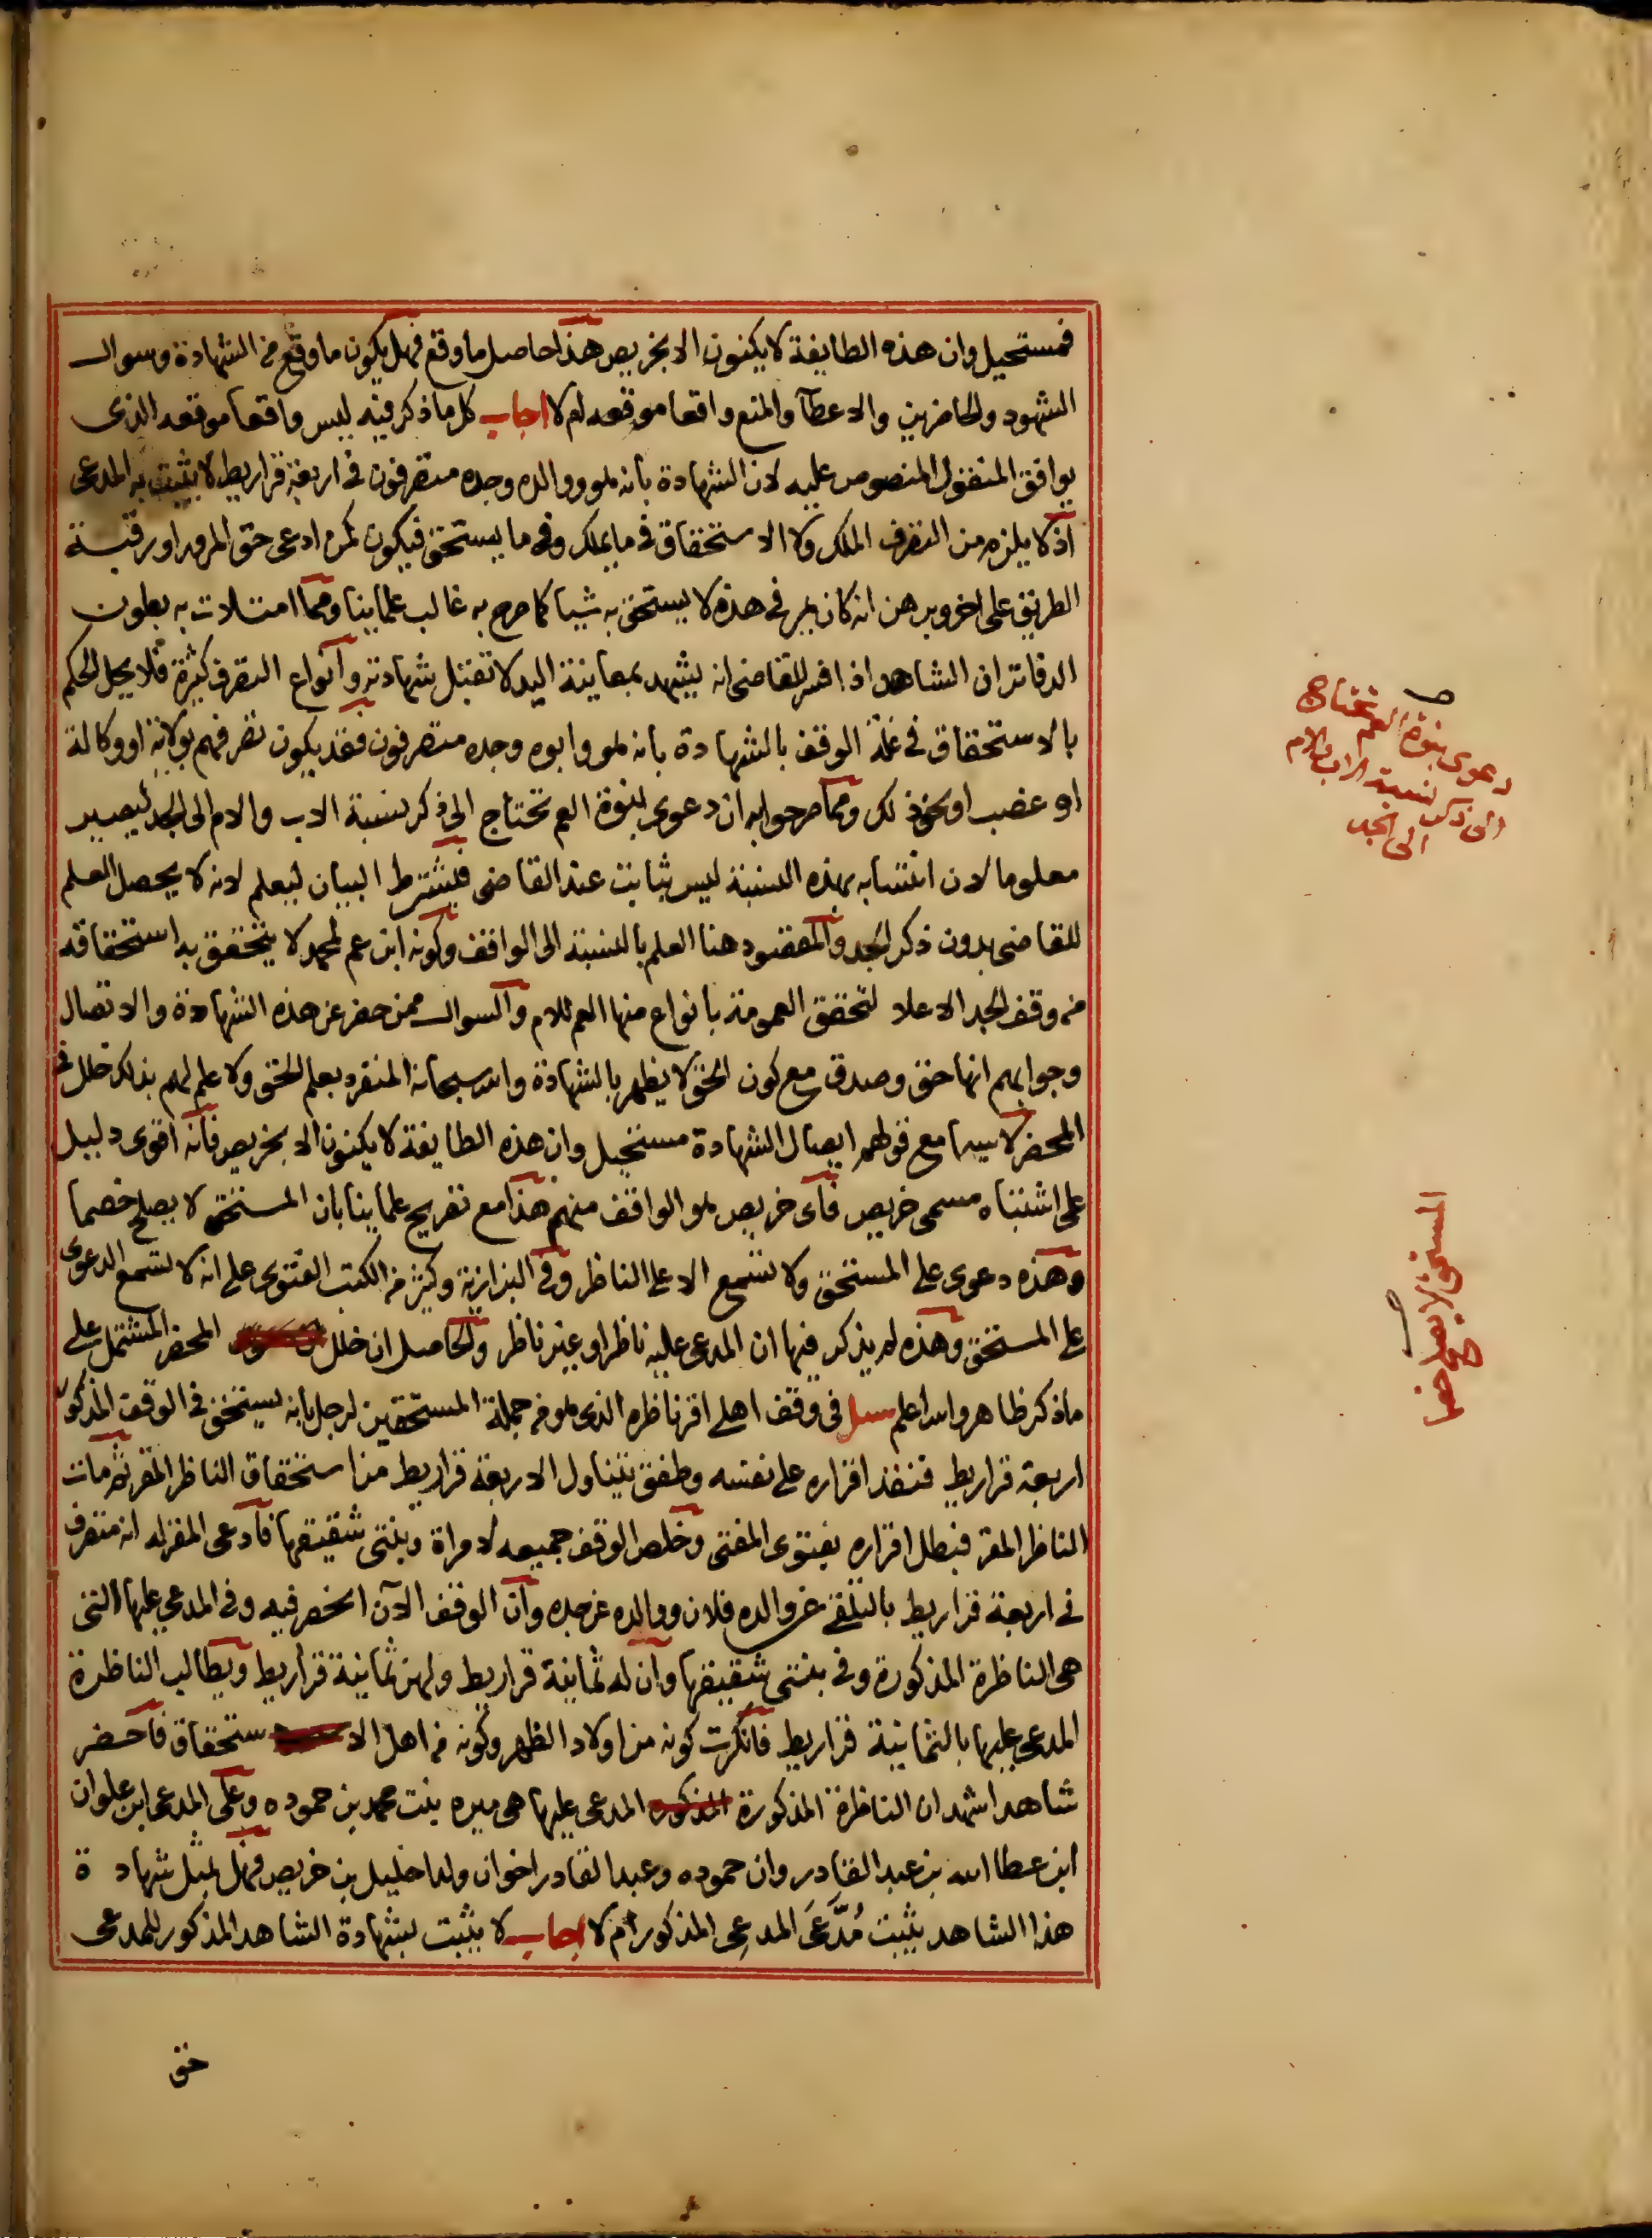 فمستحيل وان هذه الطايفة لا يكنون الا بخريص هذا حاصل ما وقع فهل يكون ما وقع من الشهادة وسوال
الشهود والحاضرين والاعطآ والمنع واقعا موقعه ام لا اجاب كل ما ذكر فيه ليس واقعا موقعه الذى
يوافق المنقول المنصوص عليه لان الشهادة بانه هو ووالده وجده متصرفون فى اربعة قراريط لا يثبت به المدعى
اذ لا يلزم من التصرف الملك ولا الاستحقاق فى ما يملك وفى ما يستحق فيكون كمن ادعى حق المرور او رقبة
الطريق على اخر وبرهن انه كان يمر فى هذه لا يستحق به شيا كما صرح به غالب علماينا ومما امتلات به بطون
الدفاتر ان الشاهد اذا فسر للقاضى انه يشهد بمعاينة اليد لا تقبل شهادته وانواع التصرف كثيرة فلا يحل الحكم
بالاستحقاق فى غلة الوقف بالشهادة بانه هو وابوه وجده متصرفون فقد يكون تصرفهم بولاية او وكالة
او غصب او نحو ذلك ومما صرحوا به ان دعوى بنوة العم تحتاج الى ذكر نسبة الاب والام الى الجد ليصير
معلوما لان انتسابه بهذه النسبة ليس بثابت عند القاضى فيشترط البيان ليعلم لانه لا يحصل العلم
للقاضى بدون ذكر الجد والمقصود هنا العلم بالنسبة الى الواقف وكونه ابن عم لمحمد لا يتحقق به استحقاقه
من وقف الجد الاعلا لتحقق العمومة بانواع منها العم للام والسوال ممن حضر عن هذه الشهادة والاتصال
وجوابهم انها حق وصدق مع كون الحق لا يظهر بالشهادة والله سبحانه المنفرد بعلم الحق ولا علم لهم بذلك خلل فى
المحضر لا سيما مع قولهم ايصال الشهادة مستحيل وان هذه الطايفة لا يكنون الا بخريص فانه اقوى دليل
على اشتباه مسمى خريص فاى خريص هو الواقف منهم هذا مع تصريح علماينا بان المستحق لا يصلح خصما
وهذه دعوى على المستحق ولا تسمع الا على الناظر وفى البزازية وكثير من الكتب الفتوى على انه لا تسمع الدعوى
على المستحق وهذه لم يذكر فيها ان المدعى عليه ناظر او غير ناظر والحاصل ان خلل المحضر المشتمل على
ما ذكر ظاهر والله اعلم سئل فى وقف اهلى اقر ناظره الذى هو من جملة المستحقين لرجل بانه يستحق فى الوقف المذكور
اربعة قراريط فنفذ اقراره على نفسه وطفق يتناول الاربعة قراريط من استحقاق الناظر المقر ثم مات
الناظر المقر فبطل اقراره بفتوى المفتى وخلص الوقف جميعه لامراة وبنتى شقيقها فادعى المقر له انه متصرف
فى اربعة قراريط بالتلقى عن والده فلان ووالده عن جده وان الوقف الآن انحصر فيه وفى المدعى عليها التى
هى الناظرة المذكورة وفى بنتى شقيقها وان له ثمانية قراريط ولهن ثمانية قراريط ويطالب الناظرة
المدعى عليها بالثمانية قراريط فانكرت كونه من اولاد الظهر وكونه من اهل الاستحقاق فاحضر
شاهدا شهد ان الناظرة المذكورة المذكوره المدعى عليها هى ميره بنت محمد بن حموده وعلى المدعى ابن علوان
ابن عطا الله بن عبد القادر وان حموده وعبد القادر اخوان ولدا خليل بن خريص فهل بمثل شهادة
هذا الشاهد يثبت مُدَّعَى المدعِى المذكور ام لا اجاب لا يثبت بشهادة الشاهد المذكور للمدعى
حق
دعوى بنوة العم تحتاج
الى ذكر نسبة الاب والام
الى الجد
المستحق لا يصلح خصما